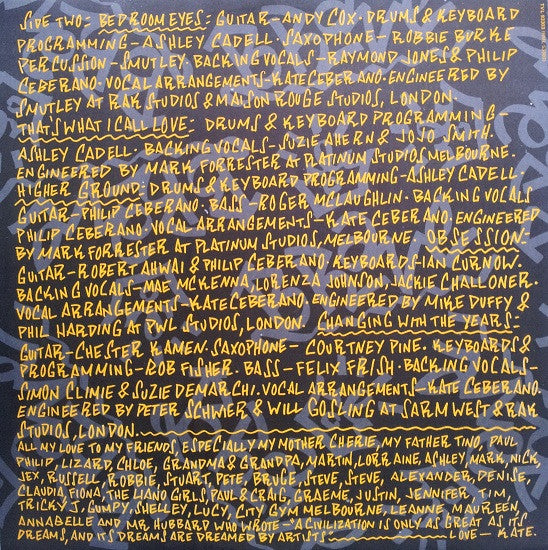 SIDE TWO: BEDROOM EYES: GUITAR-ANDY COX. DRUMS & KEYBOARD
PROGRAMMING-ASHLEY CADELL. SAXOPHONE- ROBBIE BURKE
PERCUSSION-SMUTLEY. BACKING VOCALS-RAYMOND JONES & PHILIP
CEBERANO. VOCAL ARRANGEMENTS-KATE CEBERANO. ENGINEERED BY
SMUTLEY AT RAK STUDIOS & MAISON ROUGE STUDIOS, LONDON.
THAT'S WHAT I CALL LOVE: DRUMS & KEYBOARD PROGRAMMING-
ASHLEY CADELL. BACKING VOCALS-SUZIE AHERN & JOJO SMITH.
ENGINEERED BY MARK FORRESTER AT PLATINUM STUDIOS MELBOURNE.
HIGHER GROUND: DRUMS & KEYBOARD PROGRAMMING-ASHLEY CADELL.
GUITAR-PHILIP CEBERANO. BASS-ROGER McLAUGHLIN. BACKING VOCALS
PHILIP CEBERANO. VOCAL ARRANGEMENTS-KATE CEBERANO. ENGINEERED
BY MARK FORRESTER AT PLATINUM STUDIOS, MELBOURNE. OBSESSION-
GUITAR-ROBERT AHWAI & PHILIP CEBERANO. KEYBOARDS-IAN CURNOW.
BACKING VOCALS-MAE McKENNA, LORENZA JOHNSON, JACKIE CHALLONER.
VOCAL ARRANGEMENTS-KATE CEBERANO. ENGINEERED BY MIKE DUFFY &
PHIL HARDING AT PWL STUDIOS, LONDON. CHANGING WITH THE YEARS-
GUITAR-CHESTER KAMEN. SAXOPHONE- COURTNEY PINE. KEYBOARDS &
PROGRAMMING-ROB FISHER. BASS-FELIX FRISH. BACKING VOCALS-
SIMON CLIMIE & SUZIE DEMARCHI. VOCAL ARRANGEMENTS-KATE CEBERANO.
ENGINEERED BY PETER SCHWIER & WILL GOSLING AT SARM WEST & RAK
STUDIOS, LONDON.
ALL MY LOVE TO MY FRIENDS, ESPECIALLY MY MOTHER CHERIE, MY FATHER TINO, PAUL
PHILIP, LIZARD, CHLOE, GRANDMA & GRANDPA, MARTIN, LORRAINE, ASHLEY, MARK, NICK,
JEX, RUSSELL, ROBBIE, STUART, PETE, BRUCE, STEVE, STEVE, ALEXANDER, DENISE,
CLAUDIA, FIONA, THE LIANO GIRLS, PAUL & CRAIG, GRAEME, JUSTIN, JENNIFER, TIM,
TRICKY J, GUMPY, SHELLEY, LUCY, CITY GYM MELBOURNE, LEANNE, MAUREEN,
ANNABELLE AND MR. HUBBARD WHO WROTE-"A CIVILIZATION IS ONLY AS GREAT AS ITS
DREAMS, AND ITS DREAMS ARE DREAMED BY ARTISTS" LOVE- KATE.